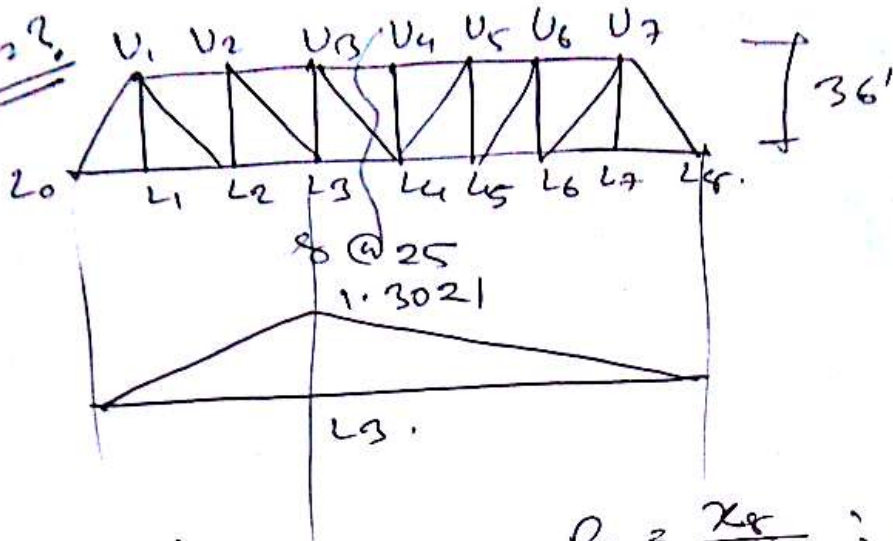 U1 U2 U3 U4 U5 U6 U7
36'
L0 L1 L2 L3 L4 L5 L6 L7 L8.
8 @ 25
1.3021
L3.